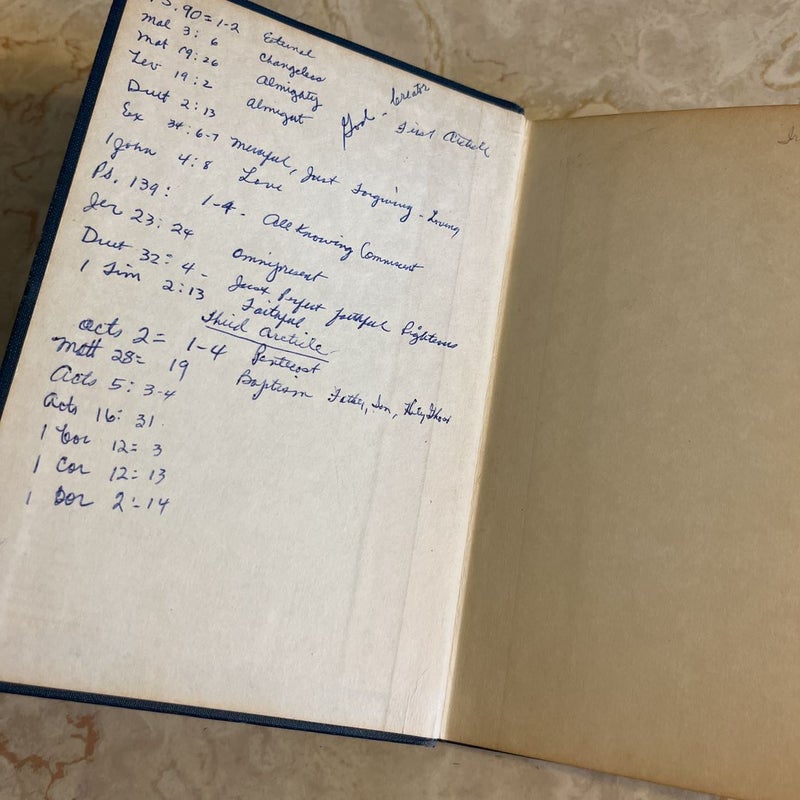 Ps. 90 = 1-2 Eternal
Mal 3: 6 Changeless
Mat 19: 26 Almighty
Lev 19: 2 Almight
God - Creator
First Article
Duet 2: 13
Ex 34: 6-7 Merciful, Just Forgiving - Loving
1 John 4: 8 Love
Ps. 139: 1-4 - All Knowing
Jer 23: 24 Omnipresent
Duet 32: 4 - Just Perfect faithful Righteous
1 Tim 2: 13 Faithful
Third Article
Acts 2 = 1-4 Pentecost
Matt 28 = 19 Baptism Father, Son, Holy Ghost
Acts 5: 3-4
Acts 16: 31
1 Cor 12 = 3
1 Cor 12 = 13
1 Cor 2:-14